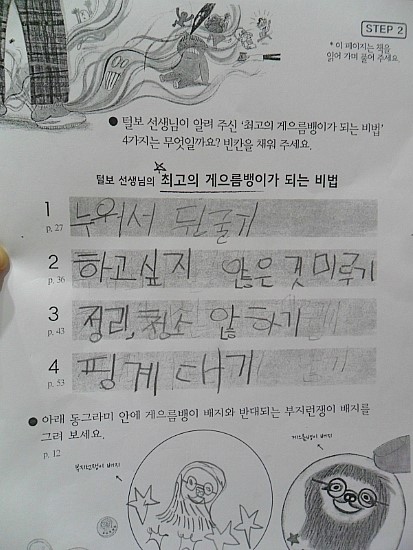 STEP 2
* 이 페이지는 책을
읽어 가며 풀어 주세요.
● 털보 선생님이 알려 주신 '최고의 게으름뱅이가 되는 비법'
4가지는 무엇일까요? 빈칸을 채워 주세요.
털보 선생님의 최고의 게으름뱅이가 되는 비법
1 누워서 뒹굴기
p. 27
2 하고싶지 않은 것 미루기
p. 36
3 정리, 청소 안 하기
p. 43
4 핑계 대기
p. 53
● 아래 동그라미 안에 게으름뱅이 배지와 반대되는 부지런쟁이 배지를
그려 보세요.
p. 12
부지런쟁이 배지
게으름뱅이 배지